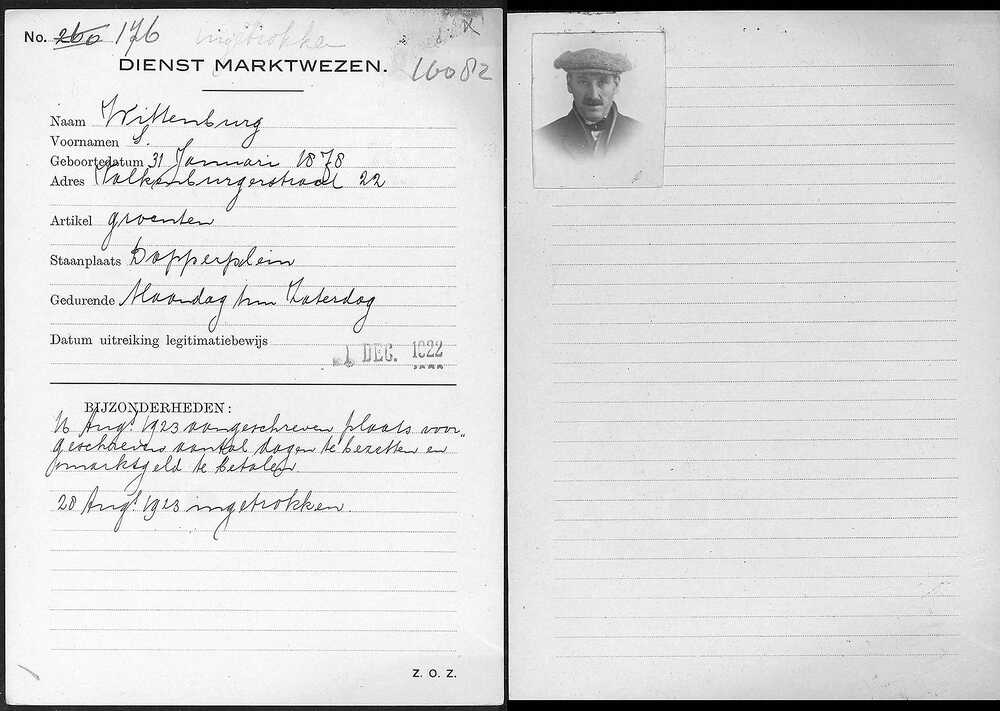 No. 260 176 ingetrokken
DIENST MARKTWEZEN. 16082
Naam Wittenburg
Voornamen S.
Geboortedatum 31 Januari 1878
Adres Valkenburgerstraat 22
Artikel groenten
Staanplaats Dapperplein
Gedurende Maandag t/m Zaterdag
Datum uitreiking legitimatiebewijs
1 DEC. 1922
BIJZONDERHEDEN:
16 Augt 1923 aangeschreven plaats voor„
geschreven aantal dagen te bezetten en
marktgeld te betalen
28 Augt 1923 ingetrokken.
Z. O. Z.